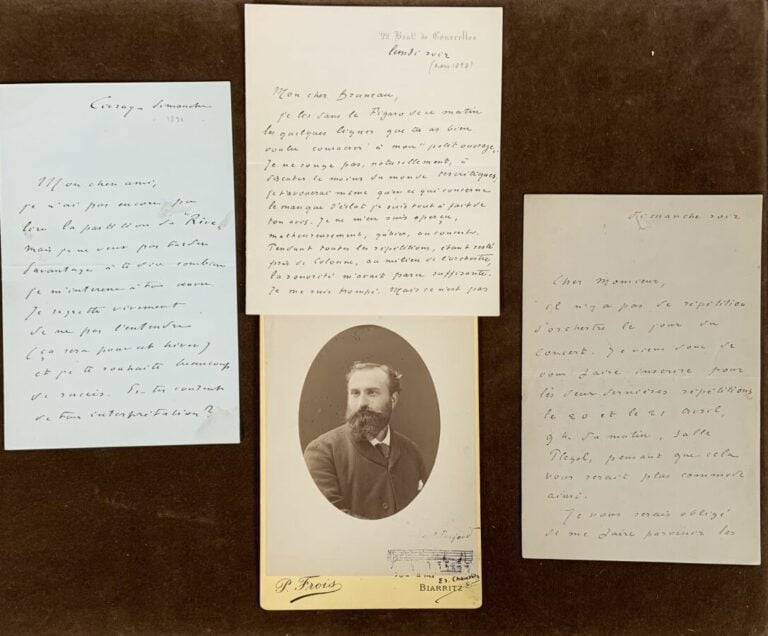 Civray Dimanche
1891
Mon cher ami,
je n'ai pas encore pu
lire la partition du "Rêve"
mais je ne veux pas tarder
davantage à te dire combien
je m'intéresse à ton œuvre.
Je regrette vivement
de ne pas l'entendre
(ça sera pour cet hiver)
et je te souhaite beaucoup
de succès. Es-tu content
de ton interprétation ?
22 Boul.d de Courcelles
lundi soir
Mon cher Bruneau,
je lis dans le Figaro de ce matin
les quelques lignes que tu as bien
voulu consacrer à mon "petit ouvrage".
Je ne songe pas, naturellement, à
discuter le moins du monde tes critiques,
je t'avouerai même qu'en ce qui concerne
le manque d'éclat je suis tout à fait de
ton avis. Je ne m'en suis aperçu,
malheureusement, qu'hier, au concert.
Pendant toutes les répétitions, étant resté
près de Colonne, au milieu de l'orchestre,
la sonorité m'avait paru suffisante.
Je me suis trompé. Mais ce n'est pas
P. Frois
BIARRITZ
son ami
Er. Chausson
dimanche soir
Cher Monsieur,
il n'y a pas de répétition
d'orchestre le jour du
concert. Je viens donc de
vous faire inscrire pour
les deux dernières répétitions
le 20 et le 21 Avril,
9 h. du matin, Salle
Pleyel, pensant que cela
vous serait plus commode
ainsi.
Je vous serais obligé
de me faire parvenir les